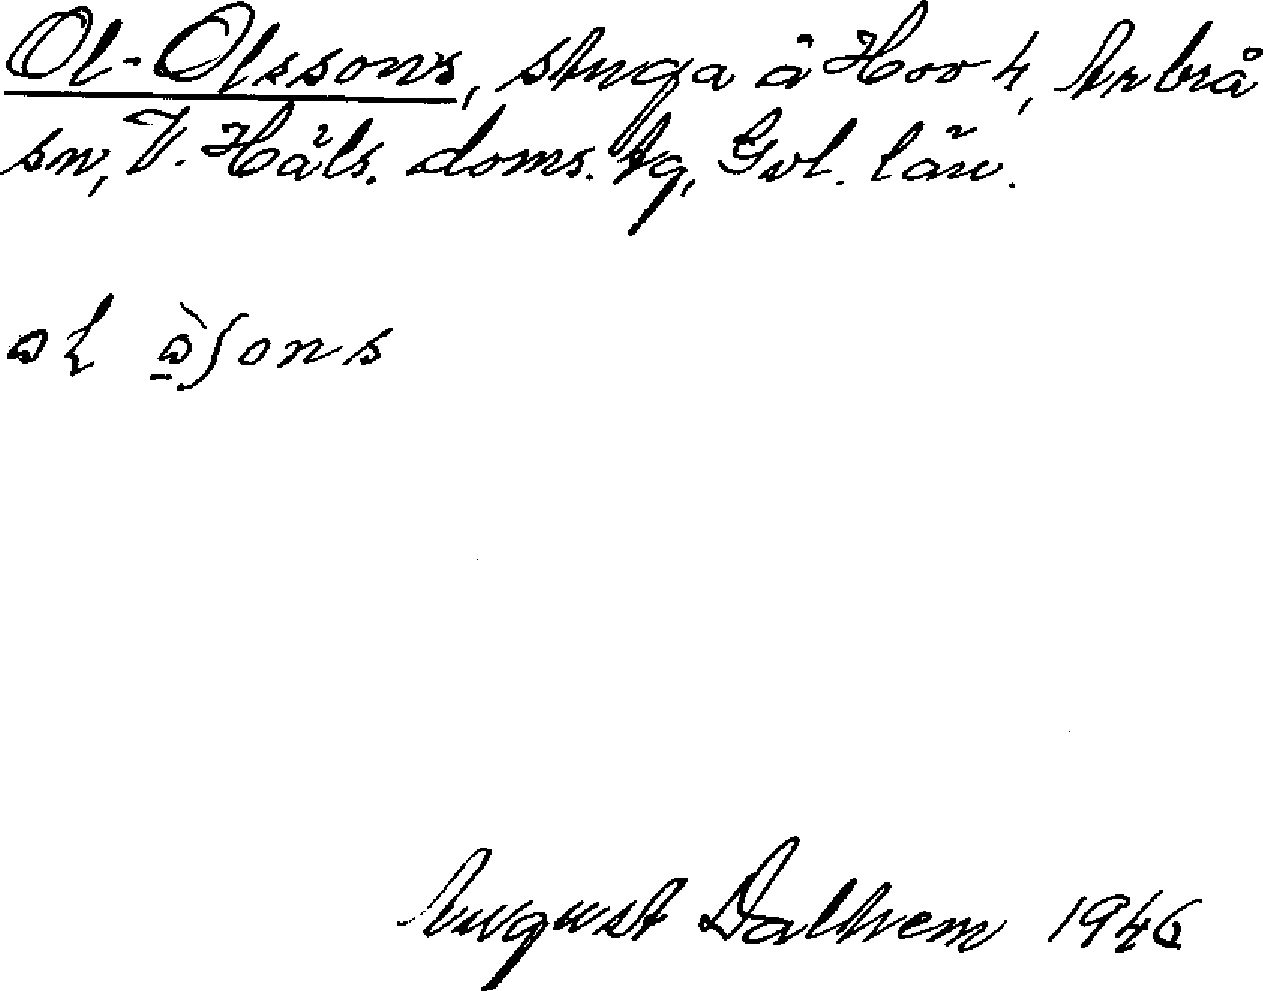 Ol-Olssons, stuga å Hov 4, Arbrå
sn, V. Häls. doms. tg, Gvl. län.
August Dalhem 1946